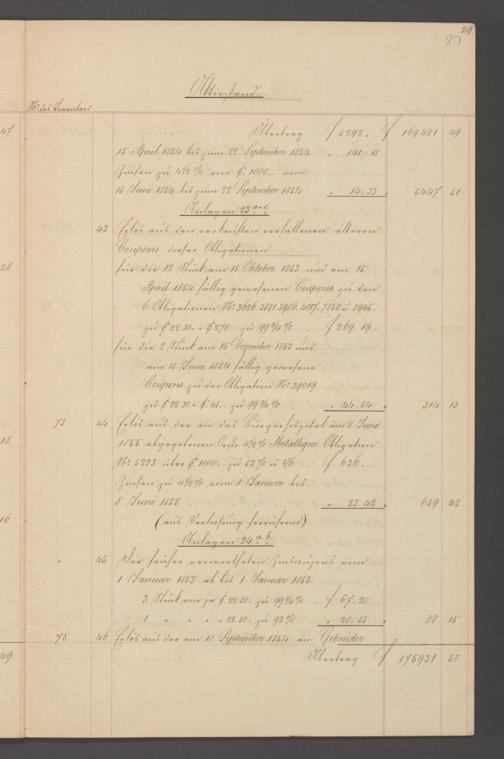 29
80
Activstand
No des Inventars
Übertrag f 5292 .. f 169421 49
15 April 1854 bis zum 22 September 1854 " 141. 18
Zinsen zu 4½ % von f 1000.- vom
15 Juni 1854 bis zum 22 September 1854 " 14. 33 " 5447 51
Anlagen 23 a-c
43 Erlös aus den verkauften verfallenen älteren
Coupons dieser Obligationen
für die 12 Stück am 15 Oktober 1853 und am 15
April 1854 fällig gewesenen Coupons zu den
6 Obligationen No 3626. 3881. 3986. 4017. 7850 u. 8945.
zu f 22.30 = f 270. zu 99¾ % f 269. 19
für die 2 Stück am 15 Dezember 1853 und
am 15 Juni 1854 fällig gewesene
Coupons zu der Obligation No 39019
zu f 22.30 = f 45. zu 99¾ % " 44. 54 " 314 13
73 44 Erlös aus der an das Bürgerhospital am 8 Juni
1855 abgegebenen Oestr. 4½ % Metallique Obligation
No 5223 über f 1000.- zu 53 % u. 6/5 f 636. -
Zinsen zu 4½ % vom 1 Januar bis
8 Juni 1855 " 23. 42 " 659 42
(aus Verloosung herrührend)
Anlagen 24 a-b
" 45 Der früher verwertheten Zinscoupons vom
1 Januar 1853 ab bis 1 Januar 1855
3 Stück um je f 22.30. zu 99¾ % f 67. 20
1 " " " " 22.30. zu 93 % " 20. 55 " 88 15
75 46 Erlös aus der am 18 September 1854 an Gebrüder
Übertrag f 175931 50